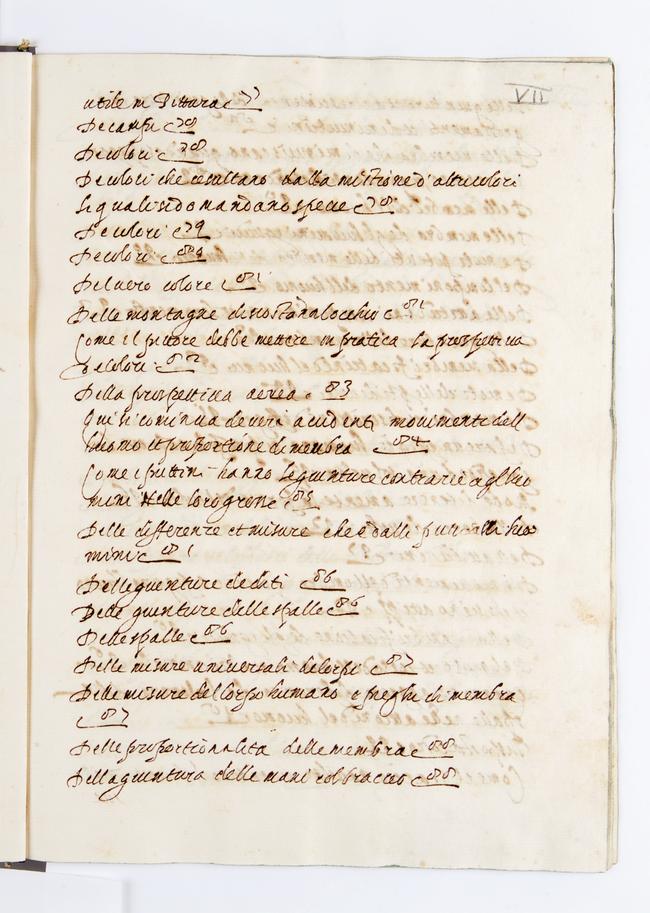 VII
utile in Pittura 77
De campi 78
De colori 78
De colori che resultano dalla mistione d'altri colori
li quali si domandano specie 78
De colori 79
De colori 80
Del vero colore 81
Delle montagne
Come il pittore debbe mettere in pratica la prospettiva
de colori 82
Della prospettiva aerea 83
Qui si comincia de veri accidenti movimenti dell
huomo et proportione di membra 84
Come i puttini hanno le giunture contrarie agli huo
mini nelle loro grosse 85
Delle differenze et misure che è dalli putti alli huo
mini
Delle giunture de diti 86
Delle giunture delle spalle 86
Delle spalle 86
Delle misure universali de corpi 87
Delle misure del corpo humano e pieghe di membra
87
Delle proportionalità delle membra 88
Della giuntura delle mani col braccio 88